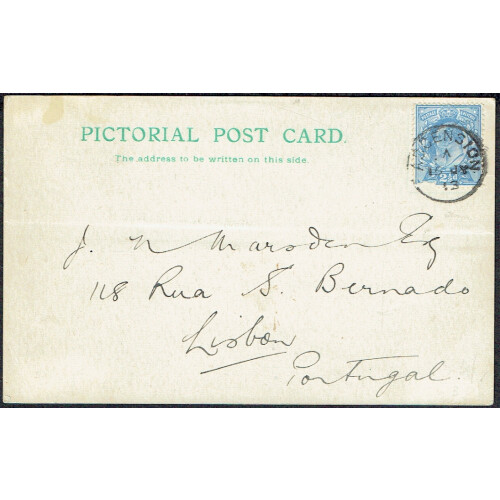 PICTORIAL POST CARD.
The address to be written on this side.
ASCENSION
A
13
2½d
J. N Marsden Esq
118 Rua S. Bernado
Lisbon
Portugal.